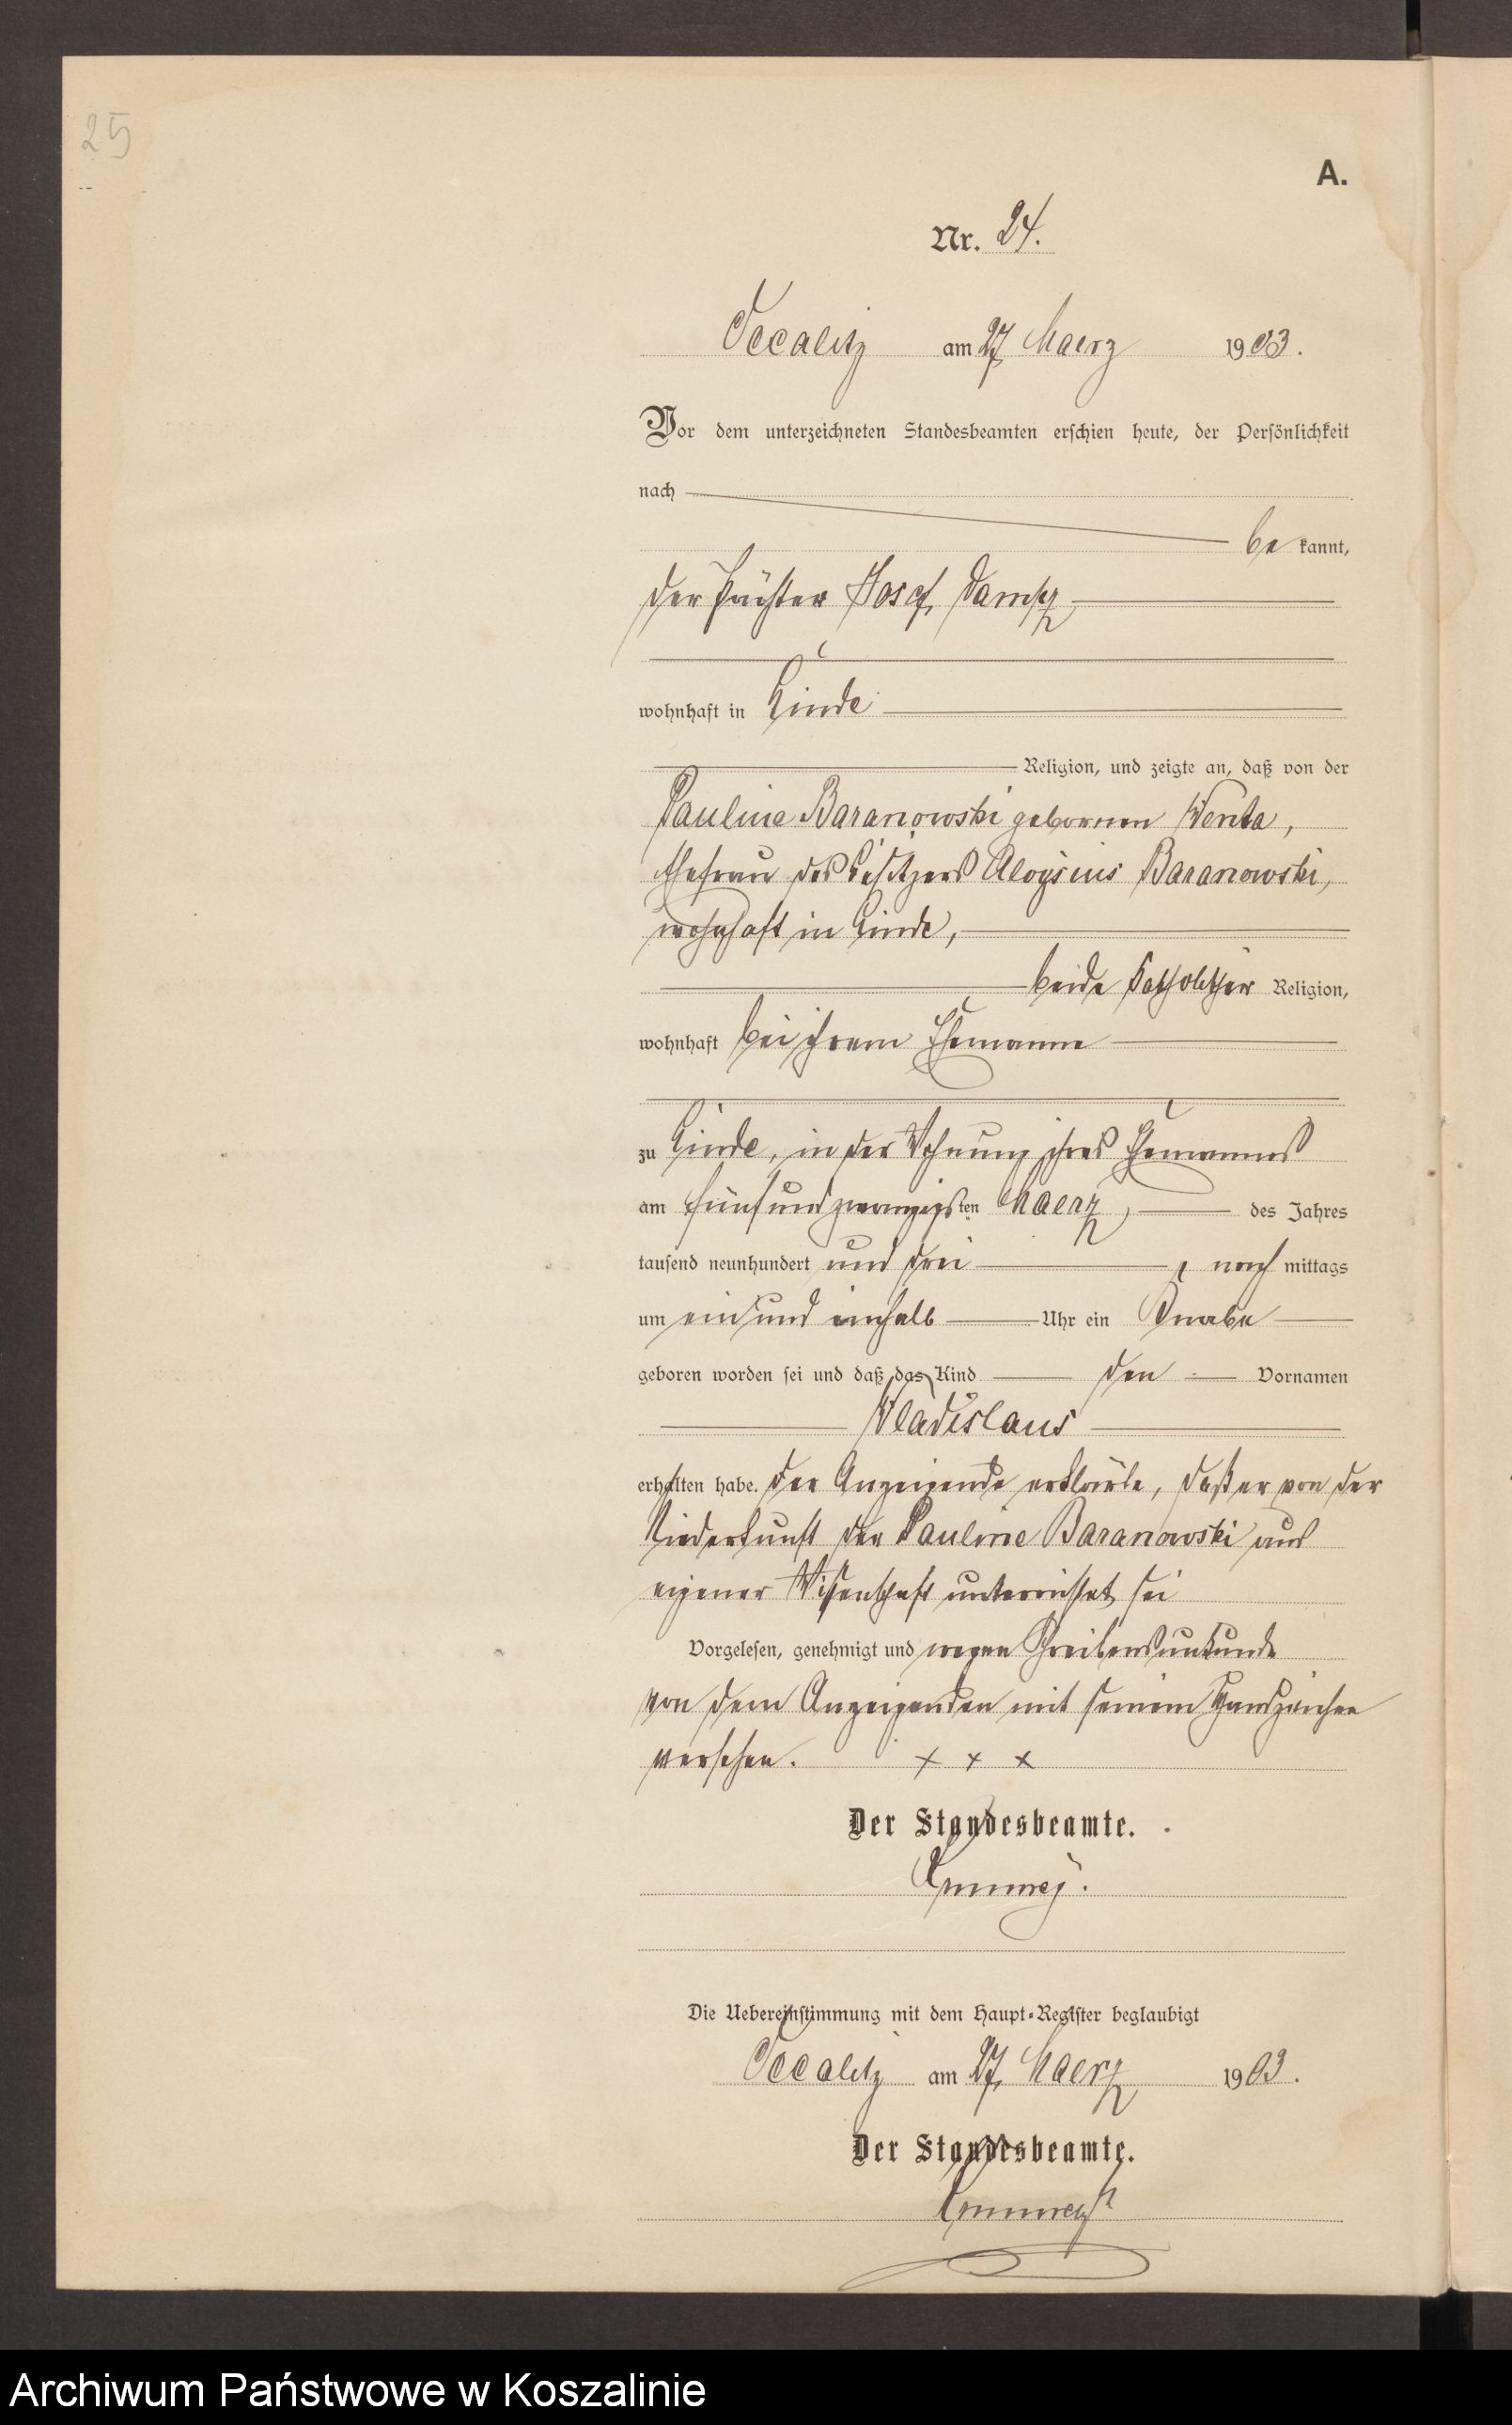 25
A.
Nr. 24.
am 27 Maerz 1903.
Vor dem unterzeichneten Standesbeamten erschien heute, der Persönlichkeit
nach
be kannt,
der Pächter Josef
wohnhaft in Linde
Religion, und zeigte an, daß von der
Pauline Baranowski gebornen Wenta,
Ehefrau des Besitzers Aloysius Baranowski,
wohnhaft in Linde,
beide katholischer Religion,
wohnhaft bei ihrem Ehemanne
zu Linde, in der Wohnung ihres Ehemannes
am fünfundzwanzigsten Maerz, des Jahres
tausend neunhundert und drei, nach mittags
um ein und einhalb Uhr ein Knabe
geboren worden sei und daß das Kind den Vornamen
Wladislaus
erhalten habe. Der Anzeigende erklärte, daß er von der
Niederkunft der Pauline Baranowski aus
eigener Wissenschaft unterrichtet sei
Vorgelesen, genehmigt und wegen Schreibensunkunde
von dem Anzeigenden mit seinem Handzeichen
versehen. x x x
Der Standesbeamte.
Die Uebereinstimmung mit dem Haupt-Register beglaubigt
am 27. Maerz 1903.
Der Standesbeamte.
Archiwum Państwowe w Koszalinie